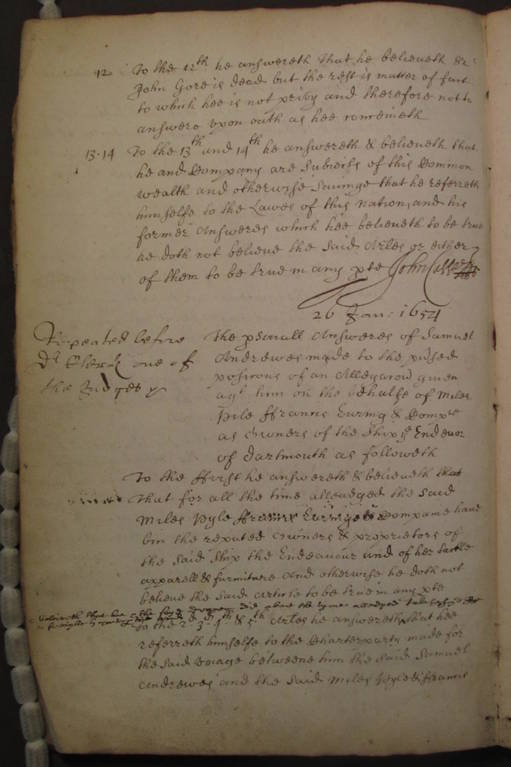 12 To the 12th he answereth That he believeth Sr
John Gore is dead but the rest is matter of fact
to which hee is not privy and therefore not to
answere upon oath as hee conceiveth
13. 14 To the 13th and 14th he answereth & believeth that
he and Company are Subiects of this Common
wealth and otherwise Saving that he referreth
himselfe to the Lawes of this nation, and his
former Answeres which hee believeth to be true
he doth not believe the said Arles or either
of them to be true in any pte John
26 Jan: 1654
Repeated before
Dr Clerk one of
the Judges
The psonall Answeres of Samuel
Andrewes made to the
posicons of an Allegacon given
agt him on the behalfe of Miles
Pyle ffrancis & Compa
as Owners of the Ship ye Endevor
of Dartmouth as followeth
To the ffirst he answereth & believeth that
That for all the time alleadged the said
Miles Pyle ffrancis & Companie have
bin the reputed Owners & proprietors of
the said Ship the Endeavour and of her tackle
apparell & furniture And otherwise he doth not
believe the said article to be true in any pte
believeth that
To the 2. 3. 4th & 5th Arles he answereth that hee
referreth himselfe to the Charterparty made for
the said voiage betweene him the said Samuel
Andrewes and the said Miles Pyle & ffrancis